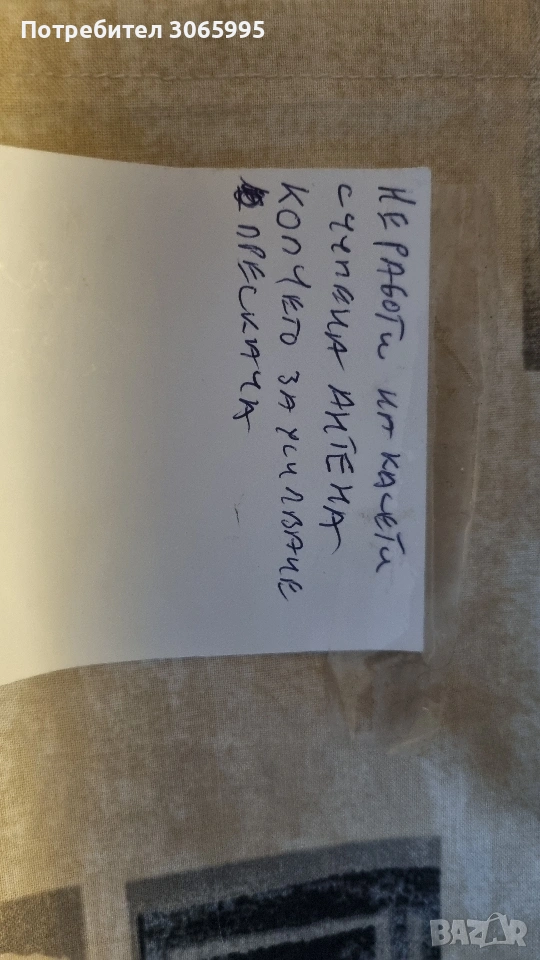 Потребител 3065995
НЕ РАБОТИ НА КАСЕТИ
СЧУПЕНА АНТЕНА
КОПЧЕТО ЗА УСИЛВАНЕ
ПРЕСКАЧА
BAZAR